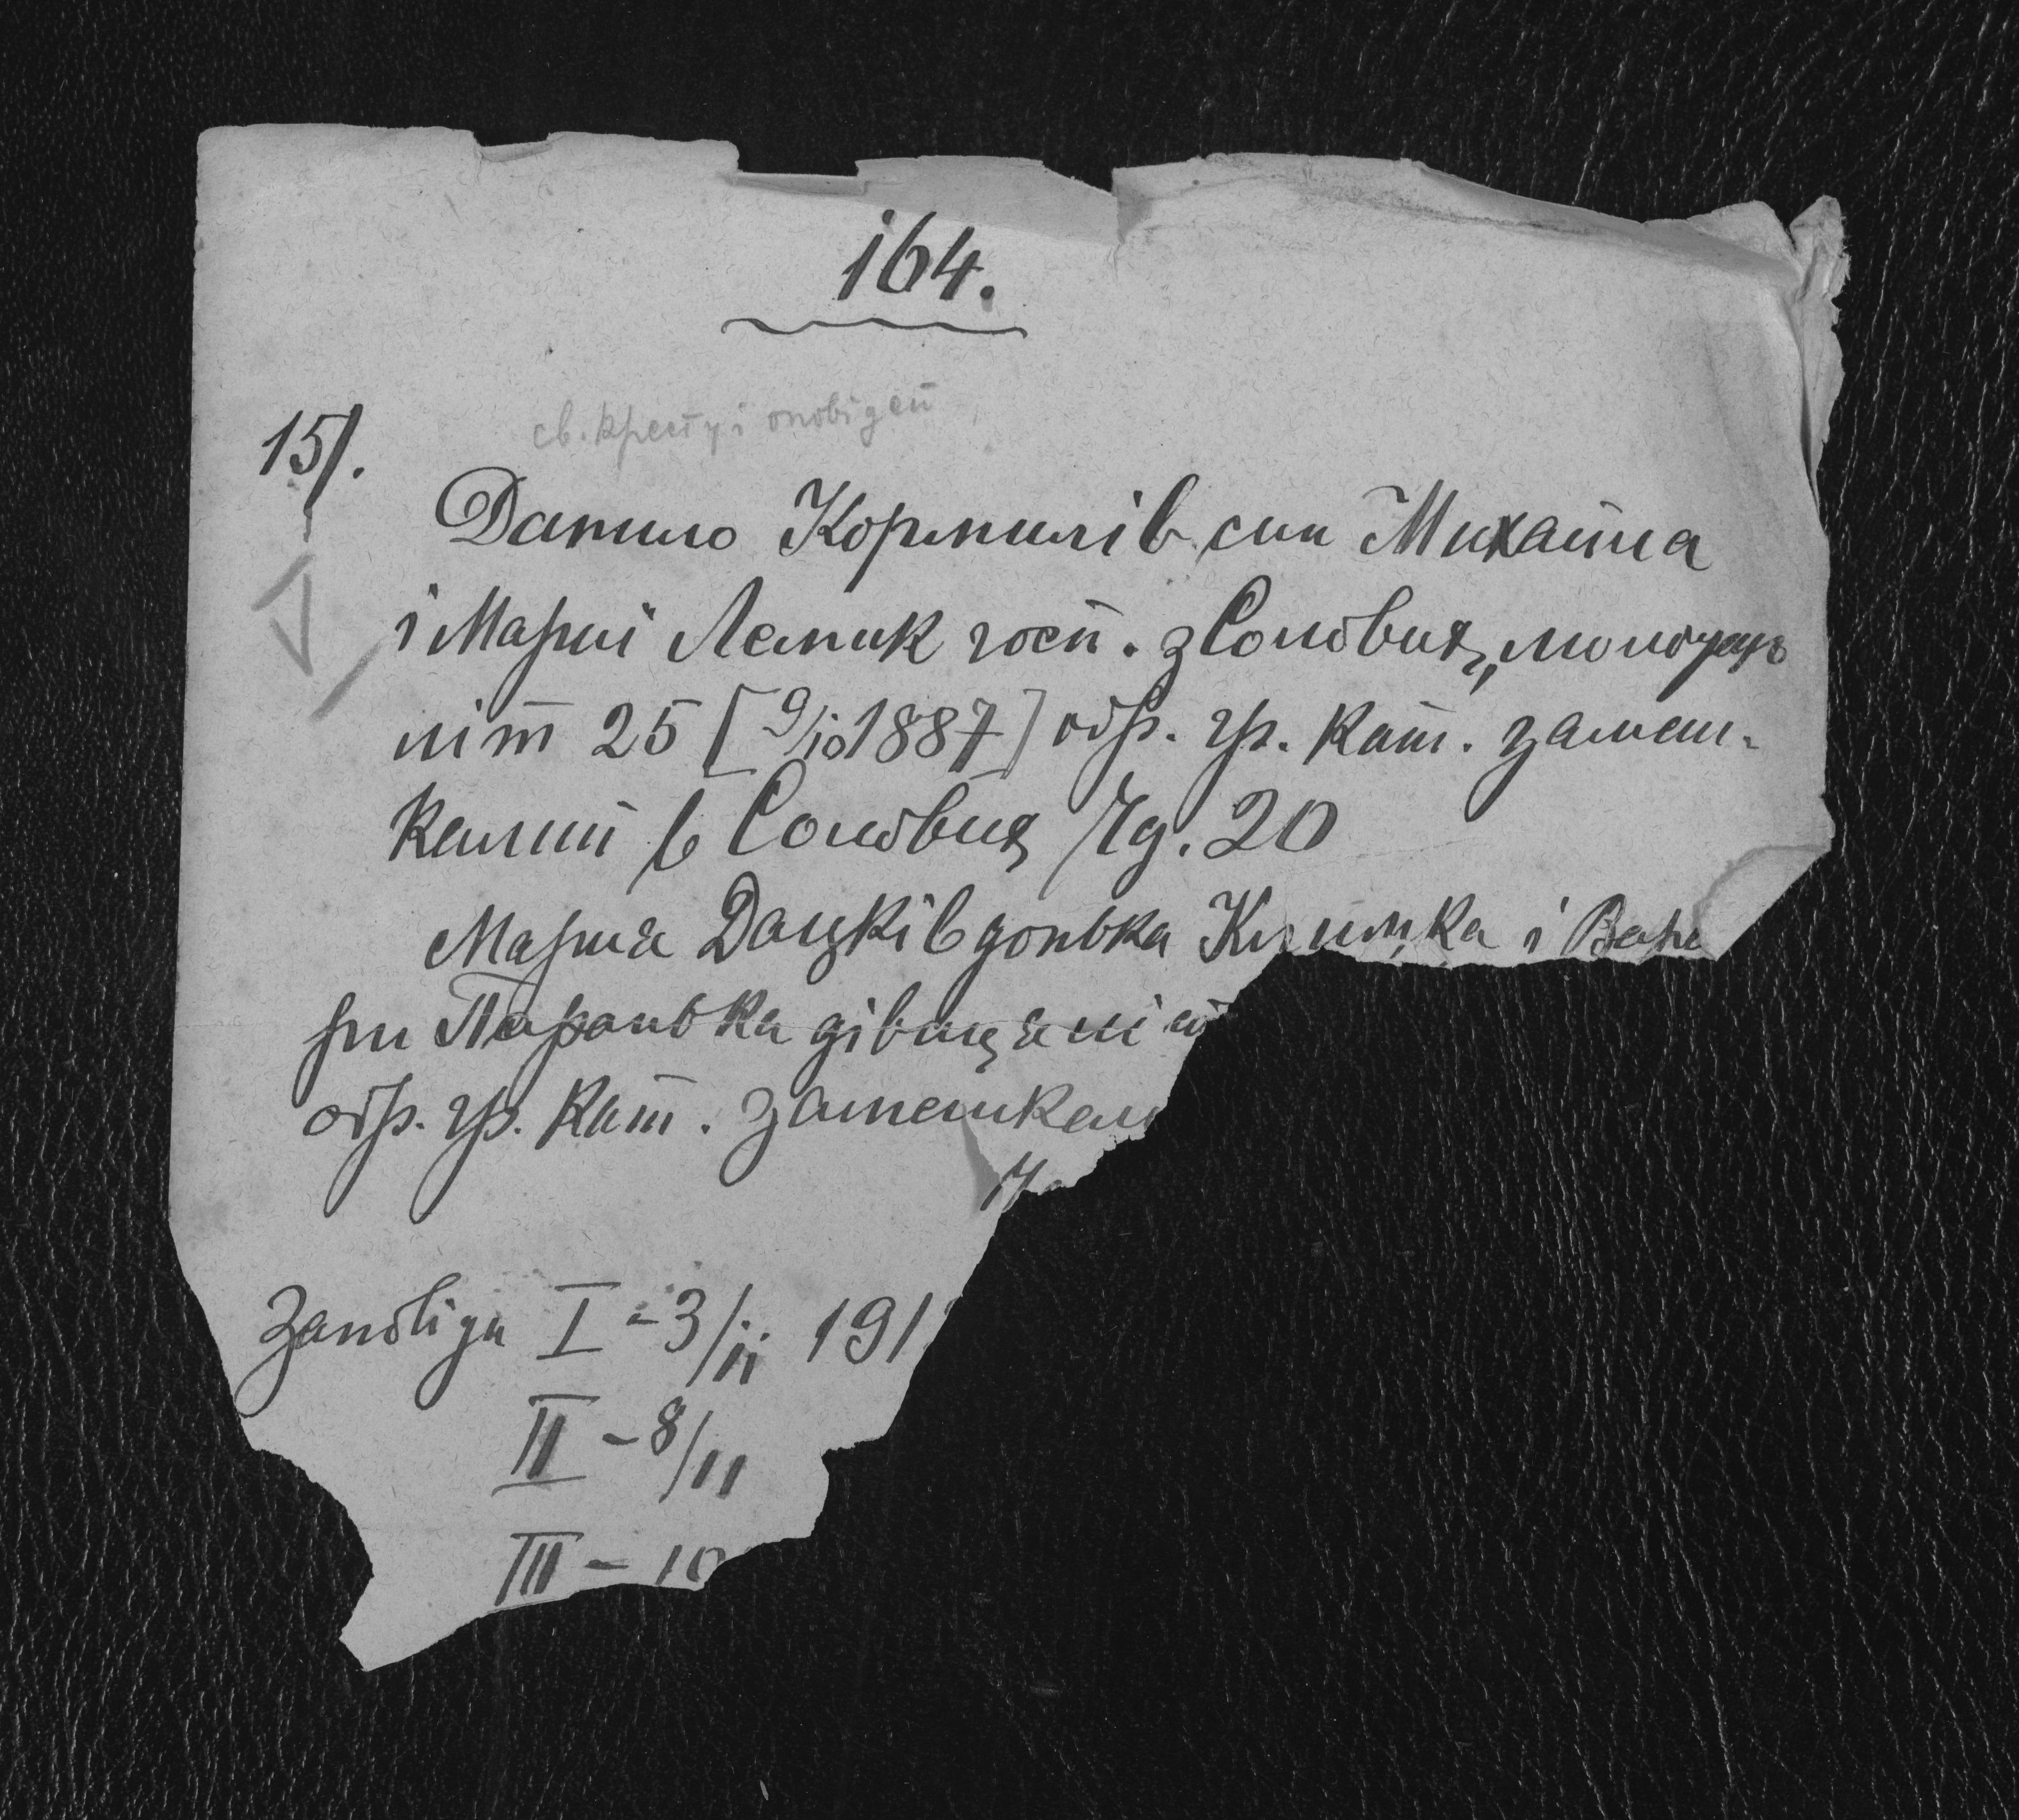 164.
св. крест у і оповідей
15/.
Данило Кормилів син Михайла
і Мариї Лемик госп. з Соловия, молодець
літ 25 [9/10 1887] обр. гр. кат. замеш-
калий в Соловия Чд. 20
Мария Дацків донька Климка і Варв
ри Паранька дівиця літ
обр. гр. кат. замешкал
Ч
Заповіди I - 3/11 191
II - 8/11
III - 10